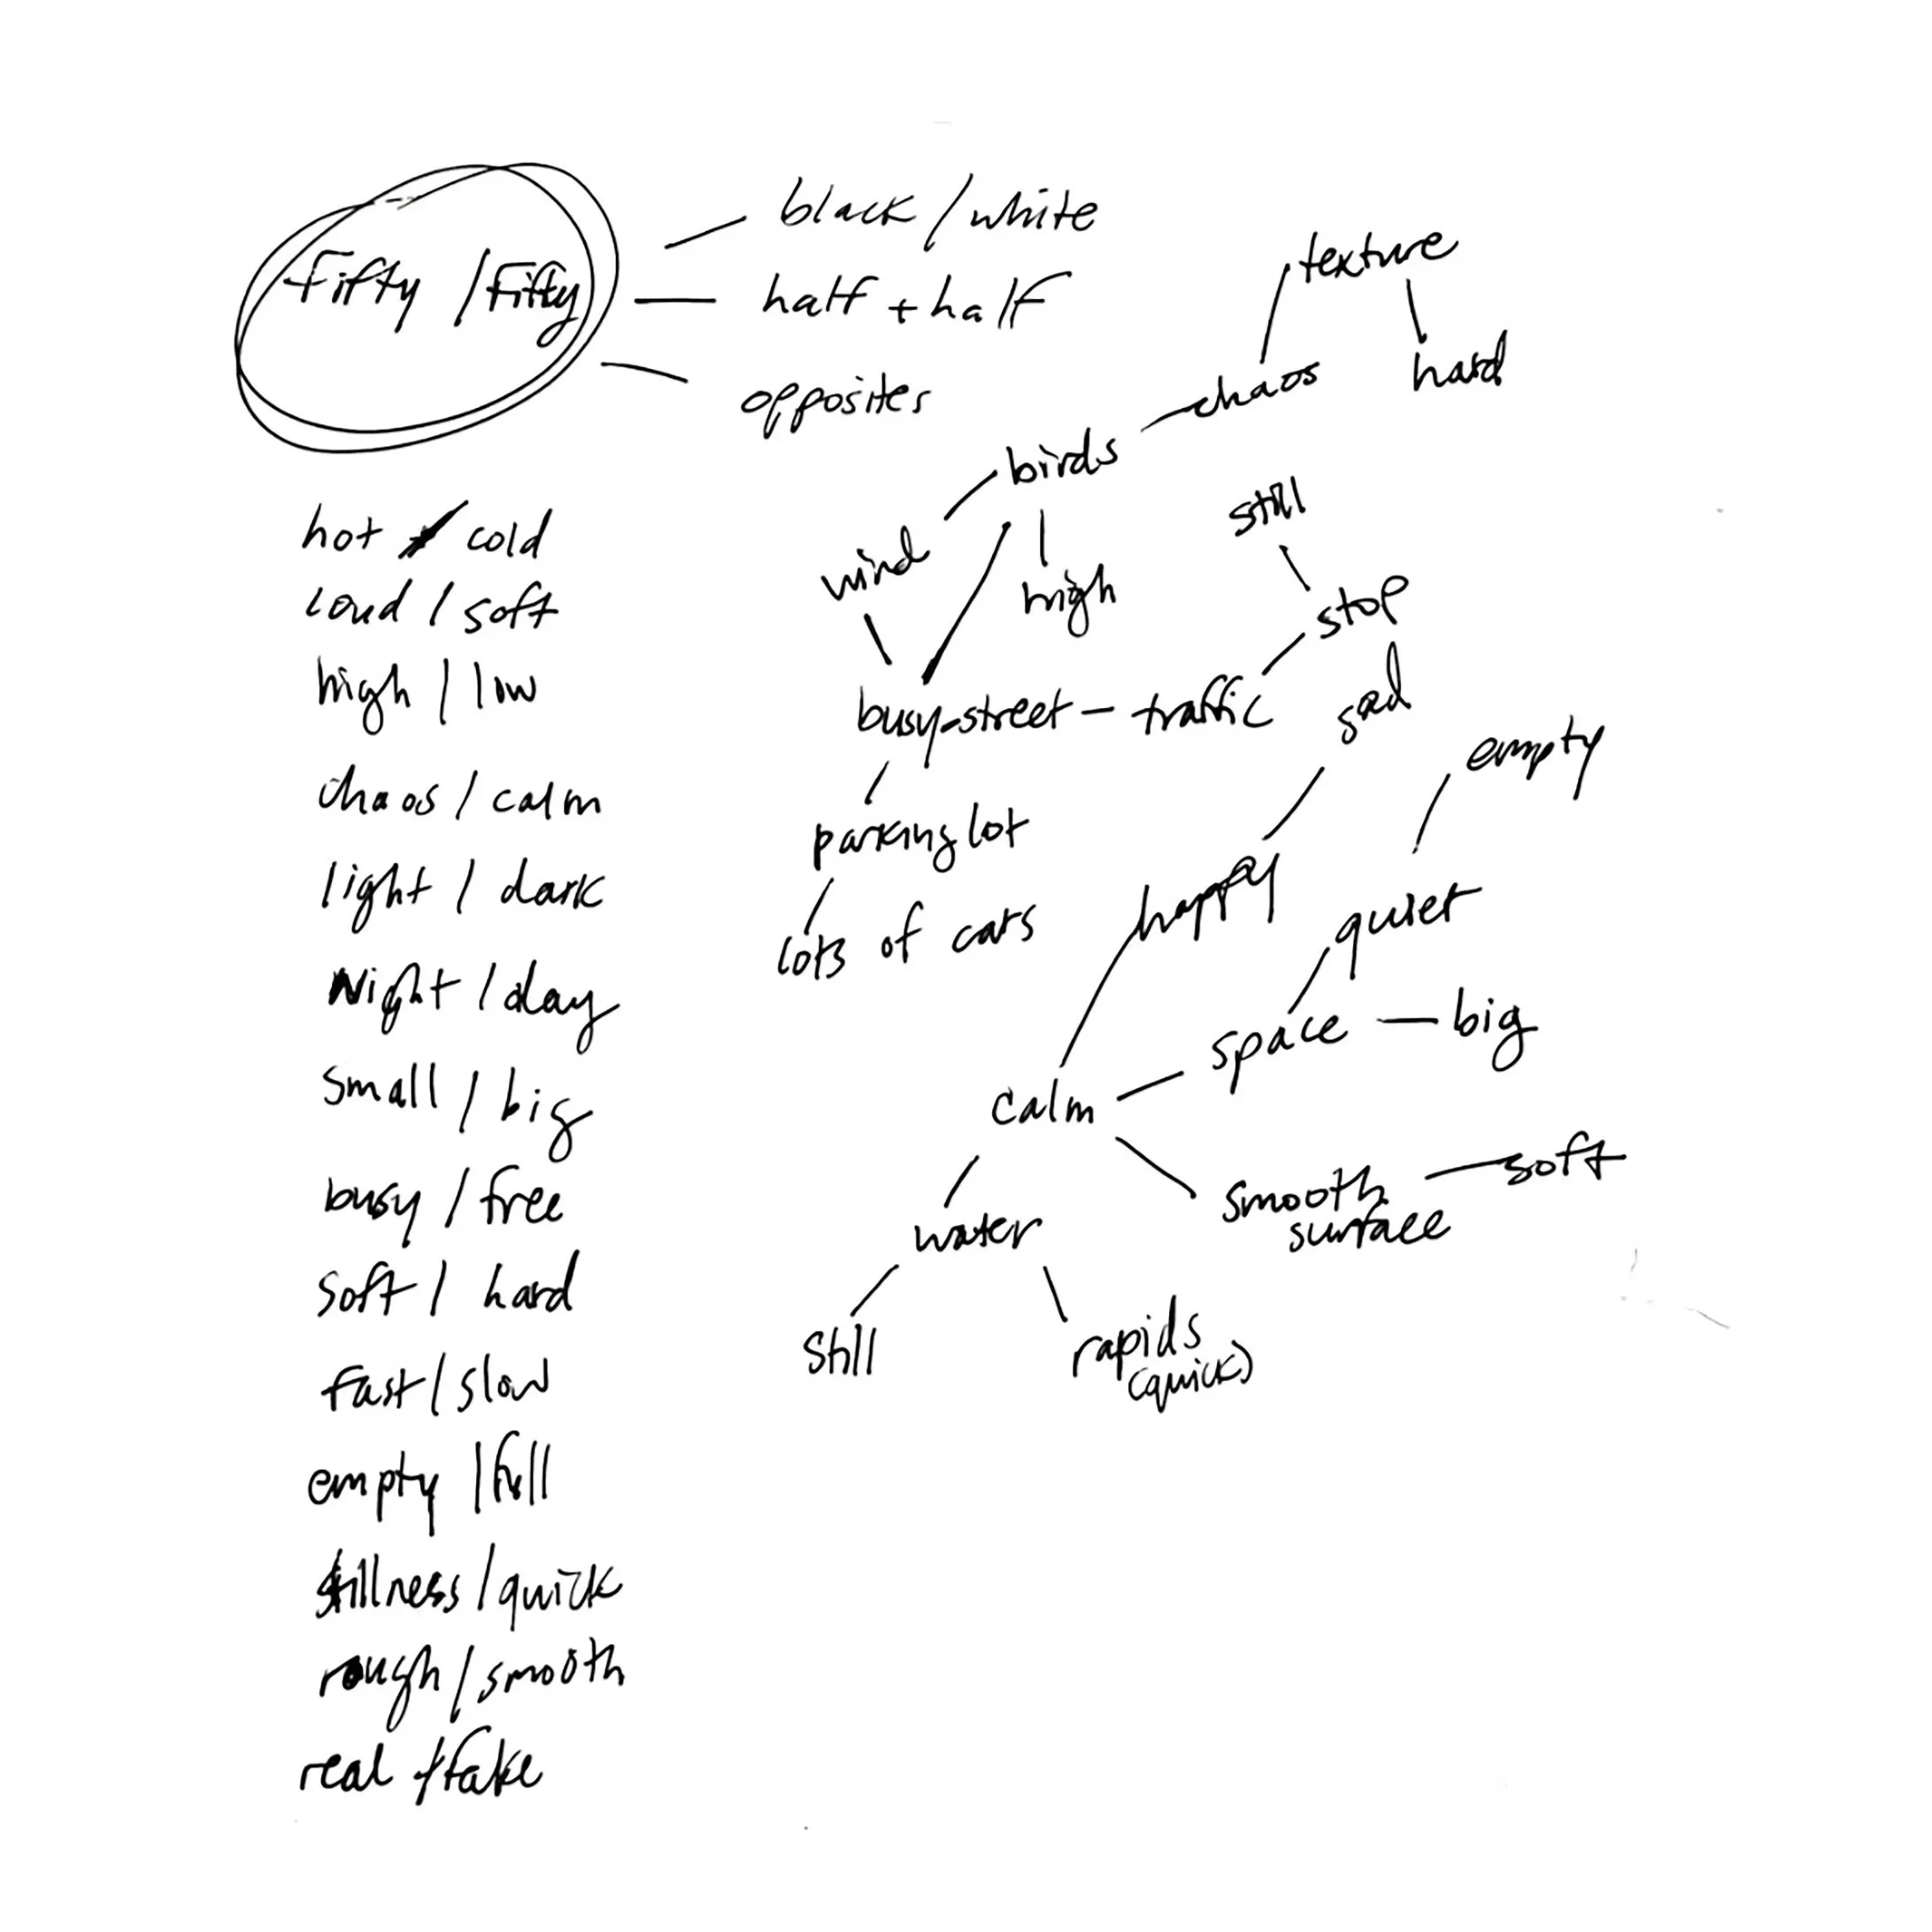 Fifty / Fifty
black / white
half + half
opposites
hot / cold
loud / soft
high / low
chaos / calm
light / dark
Night / day
small / big
busy / free
soft / hard
fast / slow
empty / full
stillness / quick
rough / smooth
real / fake
texture
hard
chaos
birds
wind
high
still
stop
busy-street - traffic
sad
empty
parking lot
lots of cars
happy
quiet
space - big
calm
soft
smooth
surface
water
still
rapids
(quick)